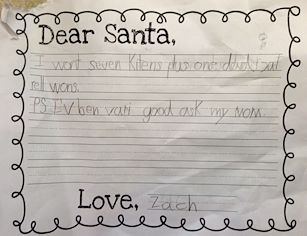 Dear Santa,
I wont seven Kitens plus one
rell wons.
PS I'V ben vari good ask my Mom.
Love, Zach